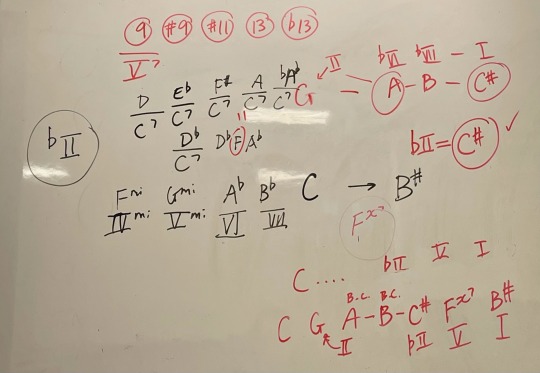 9 #9 #11 13 b13
V7
D/C7 Eb/C7 F#/C7 A/C7 bAb/C7 G
II bVI bVII - I
- A - B - C#
Db/C7 Db F Ab
bII
bII = C# ✓
Fmi Gmi Ab Bb C → B#
IVmi Vmi VI VII
Fx7
C .... bII V I
B.C. B.C.
C G A - B - C# Fx7 B#
II bII V I